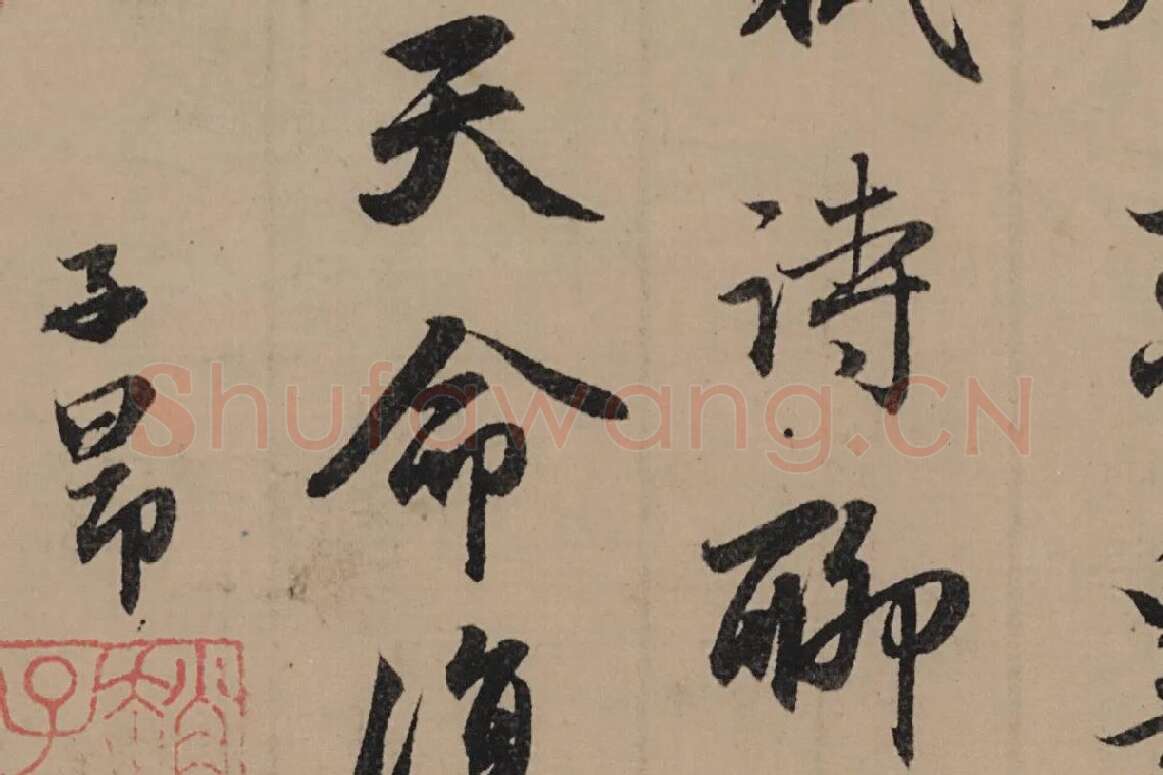 詩聊
天命復
子昂
Shufawang.CN